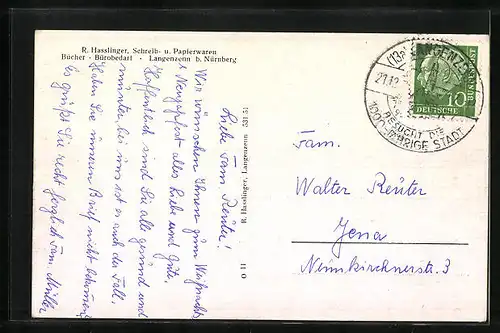 R. Hasslinger, Schreib- u. Papierwaren
Bücher · Bürobedarf · Langenzenn b. Nürnberg
Liebe Fam. Reuter!
Wir wünschen Ihnen zum Weihnachts
u. Neujahrsfest alles Liebe und Gute.
Hoffentlich sind Sie alle gesund und
munter, bei uns ist es auch der Fall.
Haben Sie unseren Brief nicht bekommen?
Es grüßt Sie recht herzlich Fam. Müller
R. Hasslinger, Langenzenn 531 51
O 11
(13a) LANGENZENN
21.12.
BESUCHT DIE
1000-JÄHRIGE STADT
DEUTSCHE
BUNDESPOST
10
Fam.
Walter Reuter
Jena
Neunkirchnerstr. 3